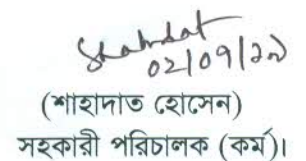 Shahdat
02/09/২১
(শাহাদাত হোসেন)
সহকারী পরিচালক (কর্ম)।